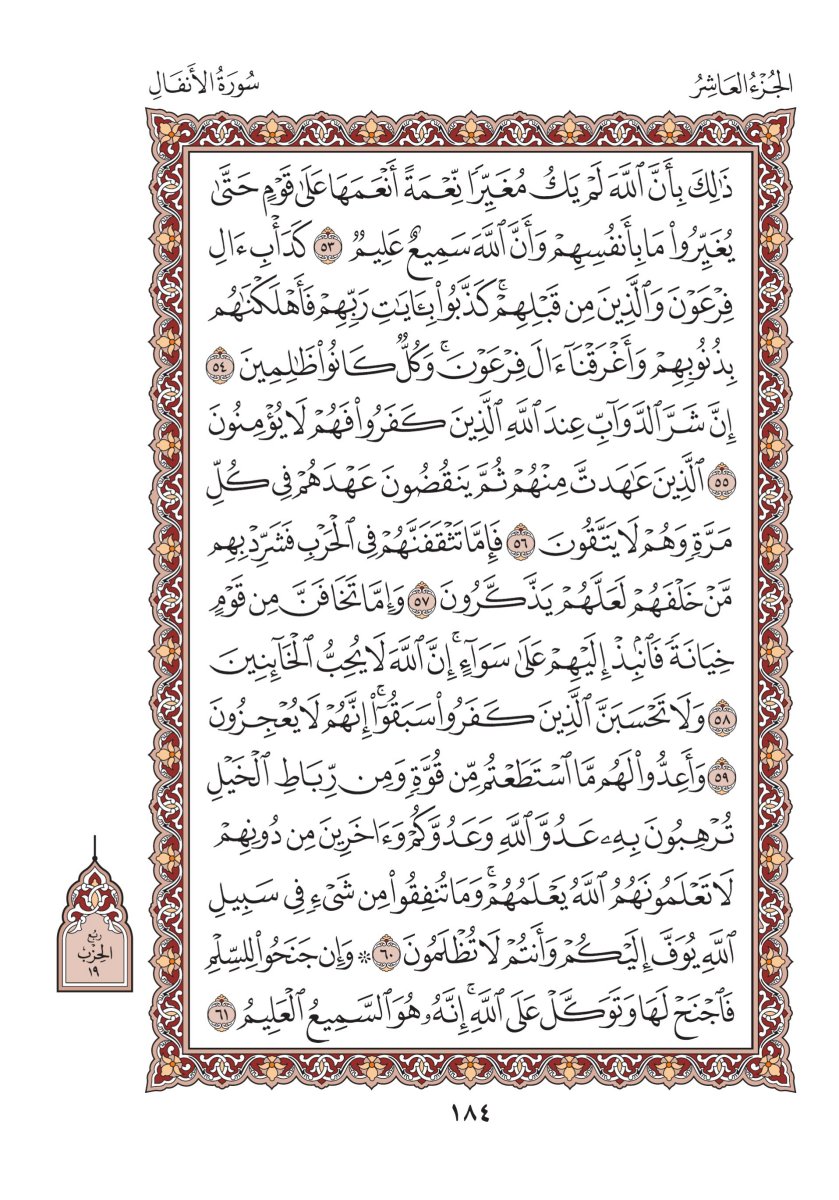 الجُزْءُ العَاشِرُ
سُورَةُ الأَنفَالِ
ذَٰلِكَ بِأَنَّ ٱللَّهَ لَمْ يَكُ مُغَيِّرًا نِّعْمَةً أَنْعَمَهَا عَلَىٰ قَوْمٍ حَتَّىٰ
يُغَيِّرُوا۟ مَا بِأَنفُسِهِمْ وَأَنَّ ٱللَّهَ سَمِيعٌ عَلِيمٌ ٥٣ كَدَأْبِ ءَالِ
فِرْعَوْنَ وَٱلَّذِينَ مِن قَبْلِهِمْ ۚ كَذَّبُوا۟ بِـَٔايَـٰتِ رَبِّهِمْ فَأَهْلَكْنَـٰهُم
بِذُنُوبِهِمْ وَأَغْرَقْنَآ ءَالَ فِرْعَوْنَ ۚ وَكُلٌّ كَانُوا۟ ظَـٰلِمِينَ ٥٤
إِنَّ شَرَّ ٱلدَّوَآبِّ عِندَ ٱللَّهِ ٱلَّذِينَ كَفَرُوا۟ فَهُمْ لَا يُؤْمِنُونَ
٥٥ ٱلَّذِينَ عَـٰهَدتَّ مِنْهُمْ ثُمَّ يَنقُضُونَ عَهْدَهُمْ فِى كُلِّ
مَرَّةٍ وَهُمْ لَا يَتَّقُونَ ٥٦ فَإِمَّا تَثْقَفَنَّهُمْ فِى ٱلْحَرْبِ فَشَرِّدْ بِهِم
مَّنْ خَلْفَهُمْ لَعَلَّهُمْ يَذَّكَّرُونَ ٥٧ وَإِمَّا تَخَافَنَّ مِن قَوْمٍ
خِيَانَةً فَٱنۢبِذْ إِلَيْهِمْ عَلَىٰ سَوَآءٍ ۚ إِنَّ ٱللَّهَ لَا يُحِبُّ ٱلْخَآئِنِينَ
٥٨ وَلَا تَحْسَبَنَّ ٱلَّذِينَ كَفَرُوا۟ سَبَقُوٓا۟ ۚ إِنَّهُمْ لَا يُعْجِزُونَ
٥٩ وَأَعِدُّوا۟ لَهُم مَّا ٱسْتَطَعْتُم مِّن قُوَّةٍ وَمِن رِّبَاطِ ٱلْخَيْلِ
تُرْهِبُونَ بِهِۦ عَدُوَّ ٱللَّهِ وَعَدُوَّكُمْ وَءَاخَرِينَ مِن دُونِهِمْ
لَا تَعْلَمُونَهُمُ ٱللَّهُ يَعْلَمُهُمْ ۚ وَمَا تُنفِقُوا۟ مِن شَىْءٍ فِى سَبِيلِ
ٱللَّهِ يُوَفَّ إِلَيْكُمْ وَأَنتُمْ لَا تُظْلَمُونَ ٦٠ ۞ وَإِن جَنَحُوا۟ لِلسَّلْمِ
فَٱجْنَحْ لَهَا وَتَوَكَّلْ عَلَى ٱللَّهِ ۚ إِنَّهُۥ هُوَ ٱلسَّمِيعُ ٱلْعَلِيمُ ٦١
رُبْعُ
الحِزْبِ
١٩
١٨٤